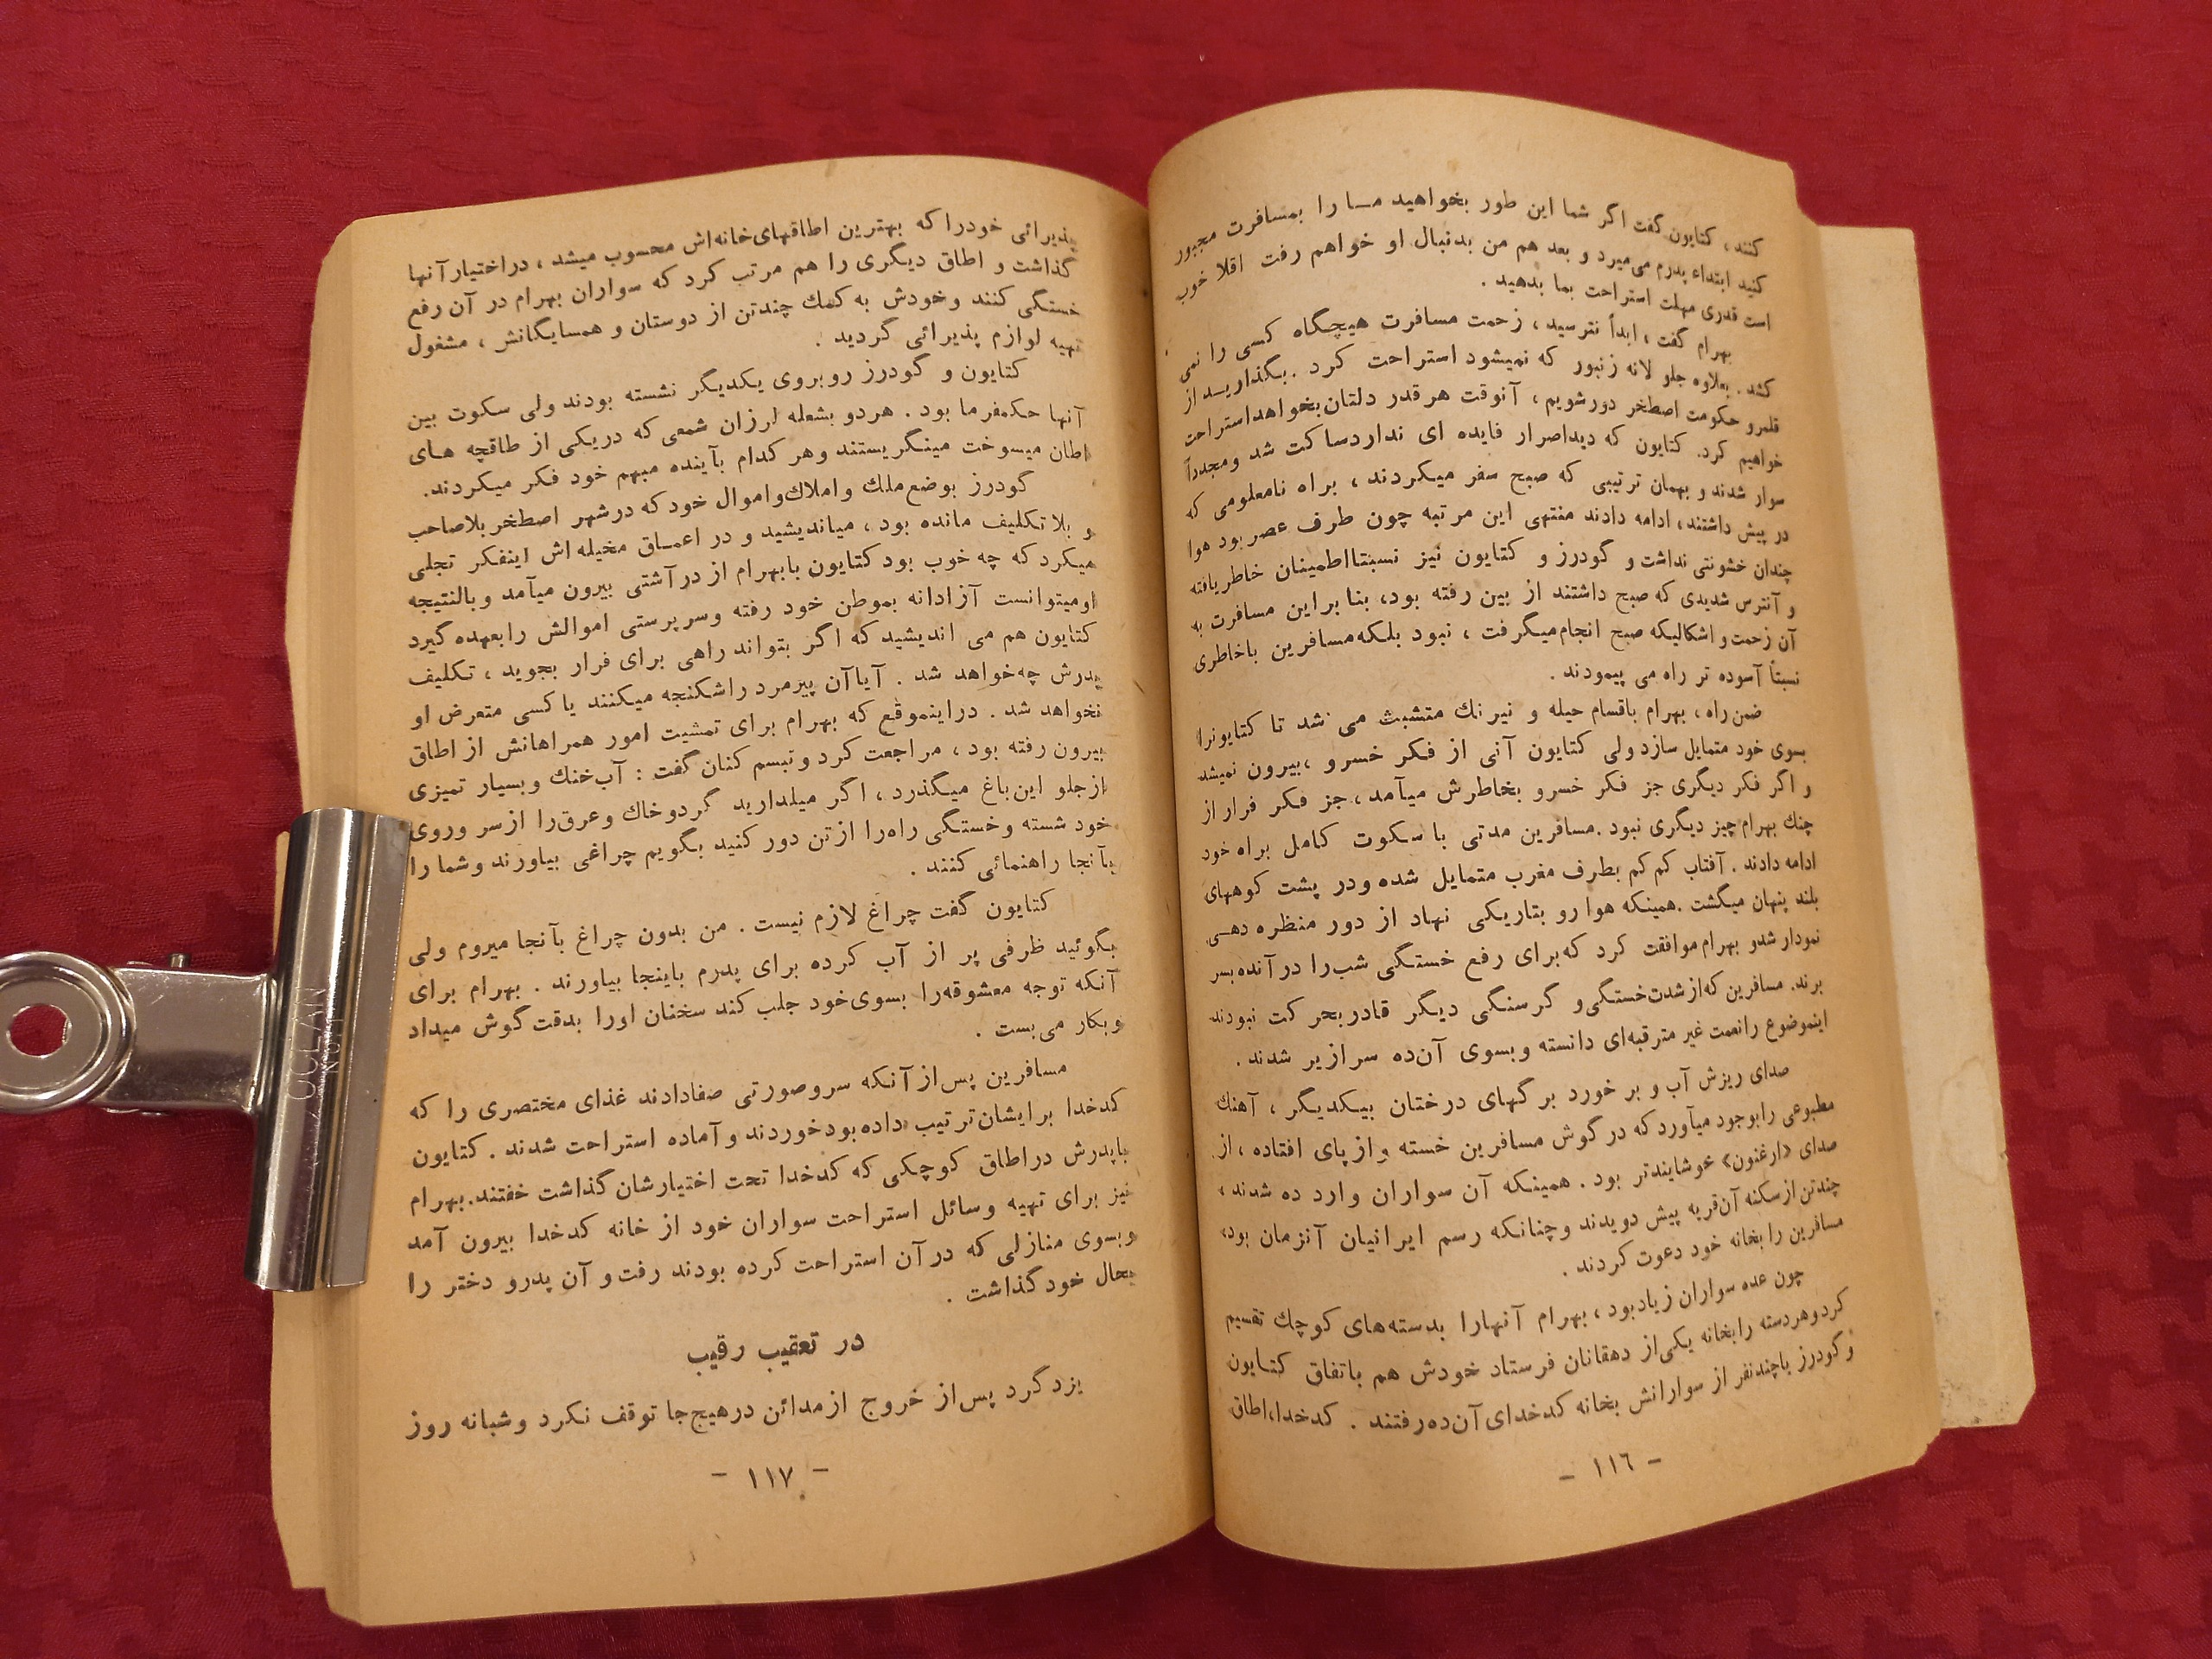 کنند ، کتایون گفت اگر شما این طور بخواهید مـا را بمسافرت مجبور
کنید ابتداء پدرم می‌میرد و بعد هم من بدنبال او خواهم رفت اقلا خوب
است قدری مهلت استراحت بما بدهید .
بهرام گفت ، ابداً نترسید ، زحمت مسافرت هیچگاه کسی را نمی
کشد . بعلاوه جلو لانه زنبور که نمیشود استراحت کرد . بگذاریـد از
قلمرو حکومت اصطخر دورشویم ، آنوقت هرقدر دلتان بخواهد استراحت
خواهیم کرد. کتایون که دید اصرار فایده ای ندارد ساکت شد و مجدداً
سوار شدند و بهمان ترتیبی که صبح سفر میکردند ، براه نامعلومی که
در پیش داشتند، ادامه دادند منتهی این مرتبه چون طرف عصر بود هوا
چندان خشونتی نداشت و گودرز و کتایون نیز نسبتا اطمینان خاطر یافته
و آنترس شدیدی که صبح داشتند از بین رفته بود، بنا براین مسافرت به
آن زحمت و اشکالیکه صبح انجام میگرفت ، نبود بلکه مسافرین باخاطری
نسبتاً آسوده تر راه می پیمودند .
ضمن راه ، بهرام باقسام حیله و نیرنك متشبث می شد تا کتایونرا
بسوی خود متمایل سازد ولی کتایون آنی از فـکر خسرو ، بیرون نمیشد
و اگر فکر دیگری جز فکر خسرو بخاطرش میآمد ، جز فـکر فرار از
چنك بهرام چیز دیگری نبود . مسافرین مدتی با سکوت کامل براه خود
ادامه دادند . آفتاب کم کم بطرف مغرب متمایل شده و در پشت کوههای
بلند پنهان میگشت . همینکه هوا رو بتاریکی نهاد از دور منظره دهـی
نمودار شدو بهرام موافقت کرد که برای رفع خستگی شب را در آنده بسر
برند. مسافرین که از شدت خستگی و گرسنگی دیگر قادر بحرکت نبودند
اینموضوع را نعمت غیر مترقبه‌ای دانسته و بسوی آن‌ده سرازیر شدند .
صدای ریزش آب و بر خورد برگهای درختان بیـکدیگر ، آهنك
مطبوعی را بوجود میآورد که در گوش مسافرین خسته و از پای افتاده ، از
صدای «ارغنون» خوشایندتر بود . همینکه آن سواران وارد ده شدند ،
چندتن از سکنه آن‌قریه پیش دویدند و چنانکه رسم ایرانیان آنزمان بود،
مسافرین را بخانه خود دعوت کردند .
چون عده سواران زیاد بود ، بهرام آنهارا بدسته‌های کوچك تقسیم
کرد و هر دسته را بخانه یکی از دهقانان فرستاد خودش هم باتفاق کتـایون
و گودرز با چند نفر از سوارانش بخانه کدخدای آن ده رفتند . کدخدا، اطاق
- ۱۱٦ -
پذیرائی خودرا که بهترین اطاقهای خانه‌اش محسوب میشد ، در اختیار آنها
گذاشت و اطاق دیگری را هم مرتب کرد که سواران بهرام در آن رفع
خستگی کنند و خودش به کمك چندتن از دوستان و همسایگانش ، مشغول
تهیه لوازم پذیرائی گردید .
کتایون و گودرز روبروی یکدیگر نشسته بودند ولی سکوت بین
آنها حکمفرما بود . هردو بشعله لرزان شمعی که دریکی از طاقچه هـای
اطان میسوخت مینگریستند و هر کدام بآینده مبهم خود فکر میکردند.
گودرز بوضع ملك و املاك و اموال خود که در شهر اصطخر بلاصاحب
و بلاتکلیف مانده بود ، میاندیشید و در اعمـاق مخیله‌اش اینفکر تجلی
میکرد که چه خوب بود کتایون بابهرام از در آشتی بیرون میآمد و بالنتیجه
اومیتوانست آزادانه بموطن خود رفته و سرپرستی اموالش را بعهده گیرد
کتایون هم می اندیشید که اگر بتواند راهی برای فرار بجوید ، تـکلیف
پدرش چه خواهد شد . آیا آن پیرمرد را شکنجه میکنند یا کسی متعرض او
نخواهد شد . در اینموقع که بهرام برای تمشیت امور همراهانش از اطاق
بیرون رفته بود ، مراجعت کرد و تبسم کنان گفت : آب خنك و بسیار تمیزی
از جلو این باغ میگذرد ، اگر میلدارید گردوخاك و عرق را از سر و روی
خود شسته و خستگی راه را از تن دور کنید بگویم چراغی بیاورند و شما را
بآنجا راهنمائی کنند .
کتایون گفت چراغ لازم نیست . من بدون چراغ بآنجا میروم ولی
بگوئید ظرفی پر از آب کرده برای پدرم باینجا بیاورند . بهرام برای
آنکه توجه معشوقه را بسوی خود جلب کند سخنان اورا بدقت گوش میداد
و بکار می بست .
مسافرین پس از آنکه سروصورتی صفادادند غذای مختصری را که
کدخدا برایشان ترتیب داده بود خوردند و آماده استراحت شدند . کتایون
باپدرش در اطاق کوچکی که کدخدا تحت اختیارشان گذاشت خفتند. بهرام
نیز برای تهیه وسائل استراحت سواران خود از خانه کدخدا بیرون آمد
و بسوی منازلی که در آن استراحت کرده بودند رفت و آن پدر و دختر را
بحال خود گذاشت .
در تعقیب رقیب
یزدگرد پس از خروج از مدائن در هیچ جا توقف نکرد و شبانه روز
- ۱۱۷ -